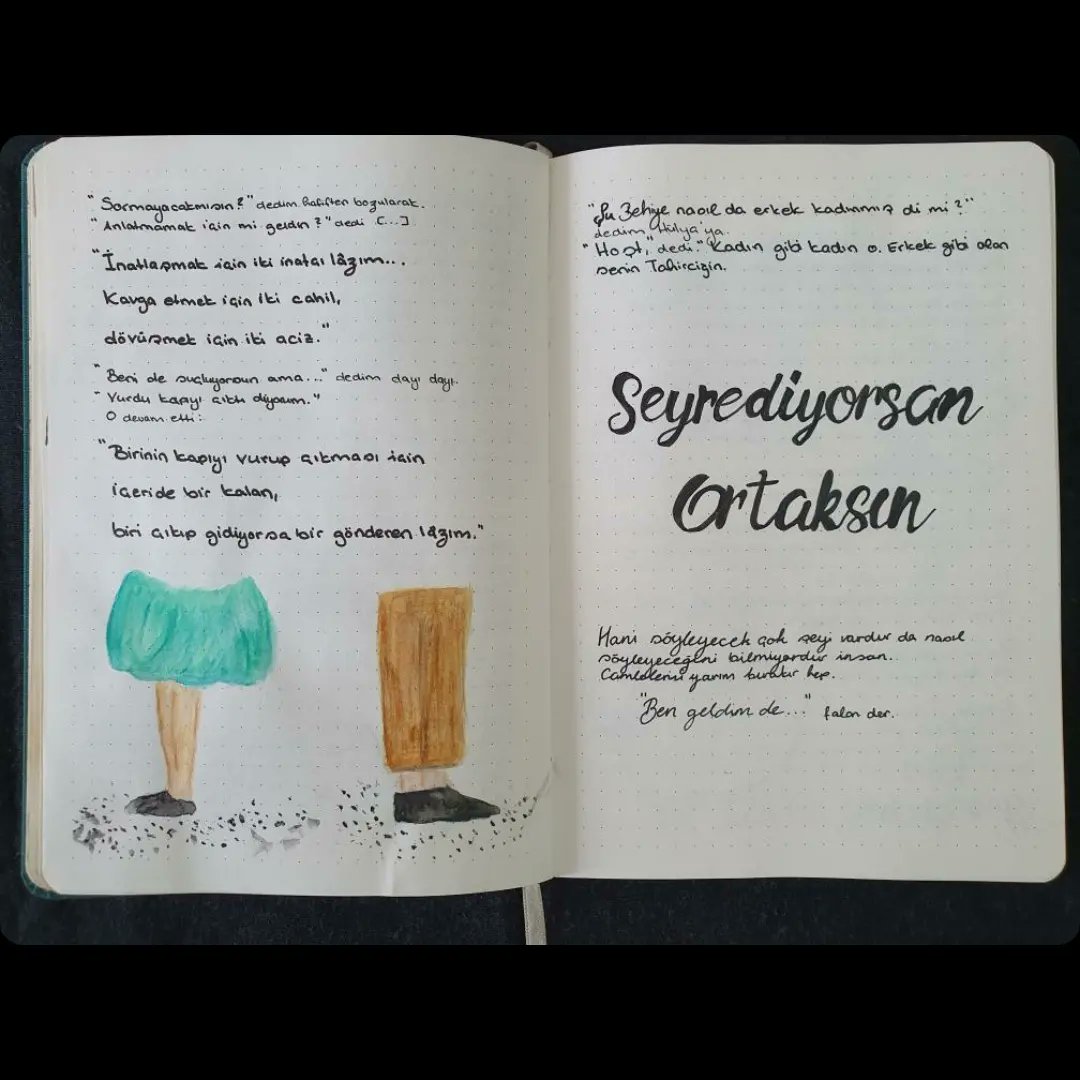 "Sormayacakmısın?" dedim hafiften bozularak.
"Anlatmamak için mi geldin?" dedi [...]
"İnatlaşmak için iki inatçı lâzım...
Kavga etmek için iki cahil,
dövüşmek için iki aciz."
"Beni de suçluyorsun ama..." dedim dayı dayı.
"Vurdu kapıyı çıktı diyorum."
O devam etti:
"Birinin kapıyı vurup çıkması için
içeride bir kalan,
biri çıkıp gidiyorsa bir gönderen lâzım."
"Şu Zehiye nasıl da erkek kadınmış di mi?"
dedim Hülya'ya.
"Hoşt," dedi. "Kadın gibi kadın o. Erkek gibi olan
senin Tahirciğin.
Seyrediyorsan
Ortaksın
Hani söyleyecek çok şeyi vardır da nasıl
söyleyeceğini bilmiyordur insan.
Cümlelerini yarım bırakır hep.
"Ben geldim de..." falan der.